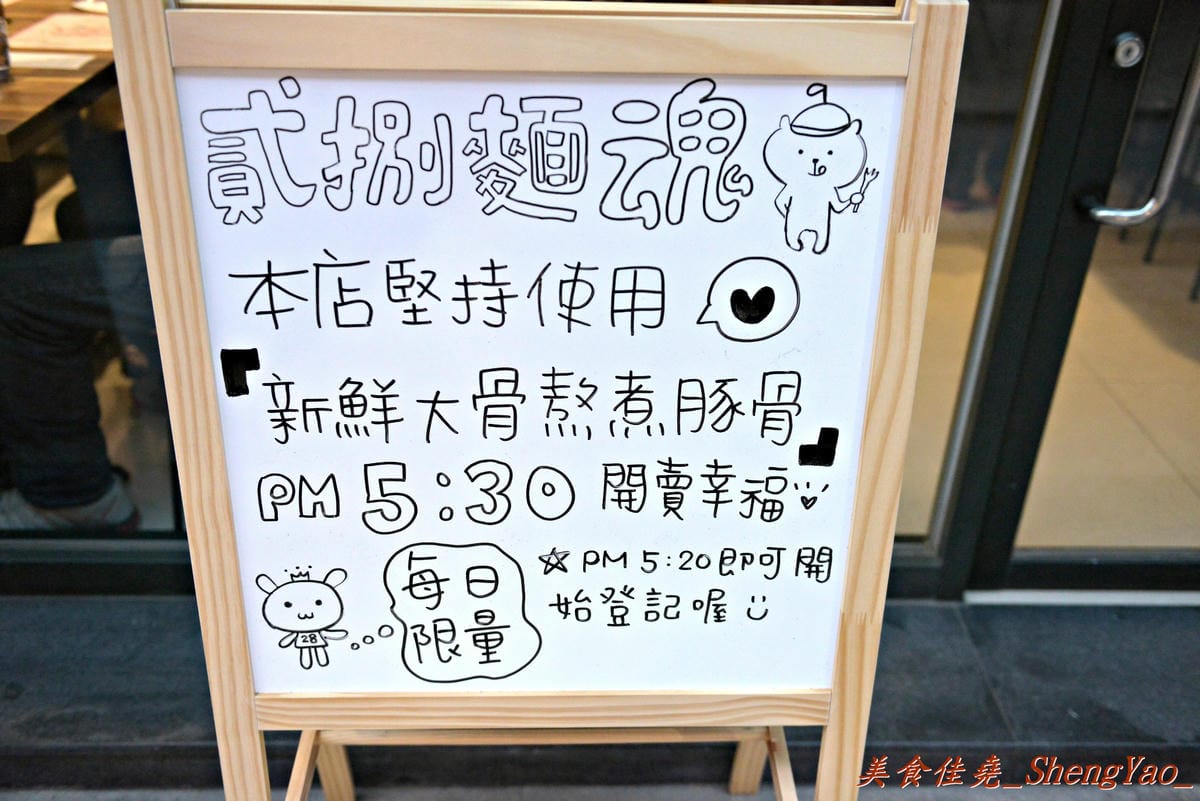 貳捌麵魂
本店堅持使用
「新鮮大骨熬煮豚骨」
PM 5:30 開賣幸福
每日
限量
☆ PM 5:20即可開
始登記喔
28
美食佳堯_ShengYao_